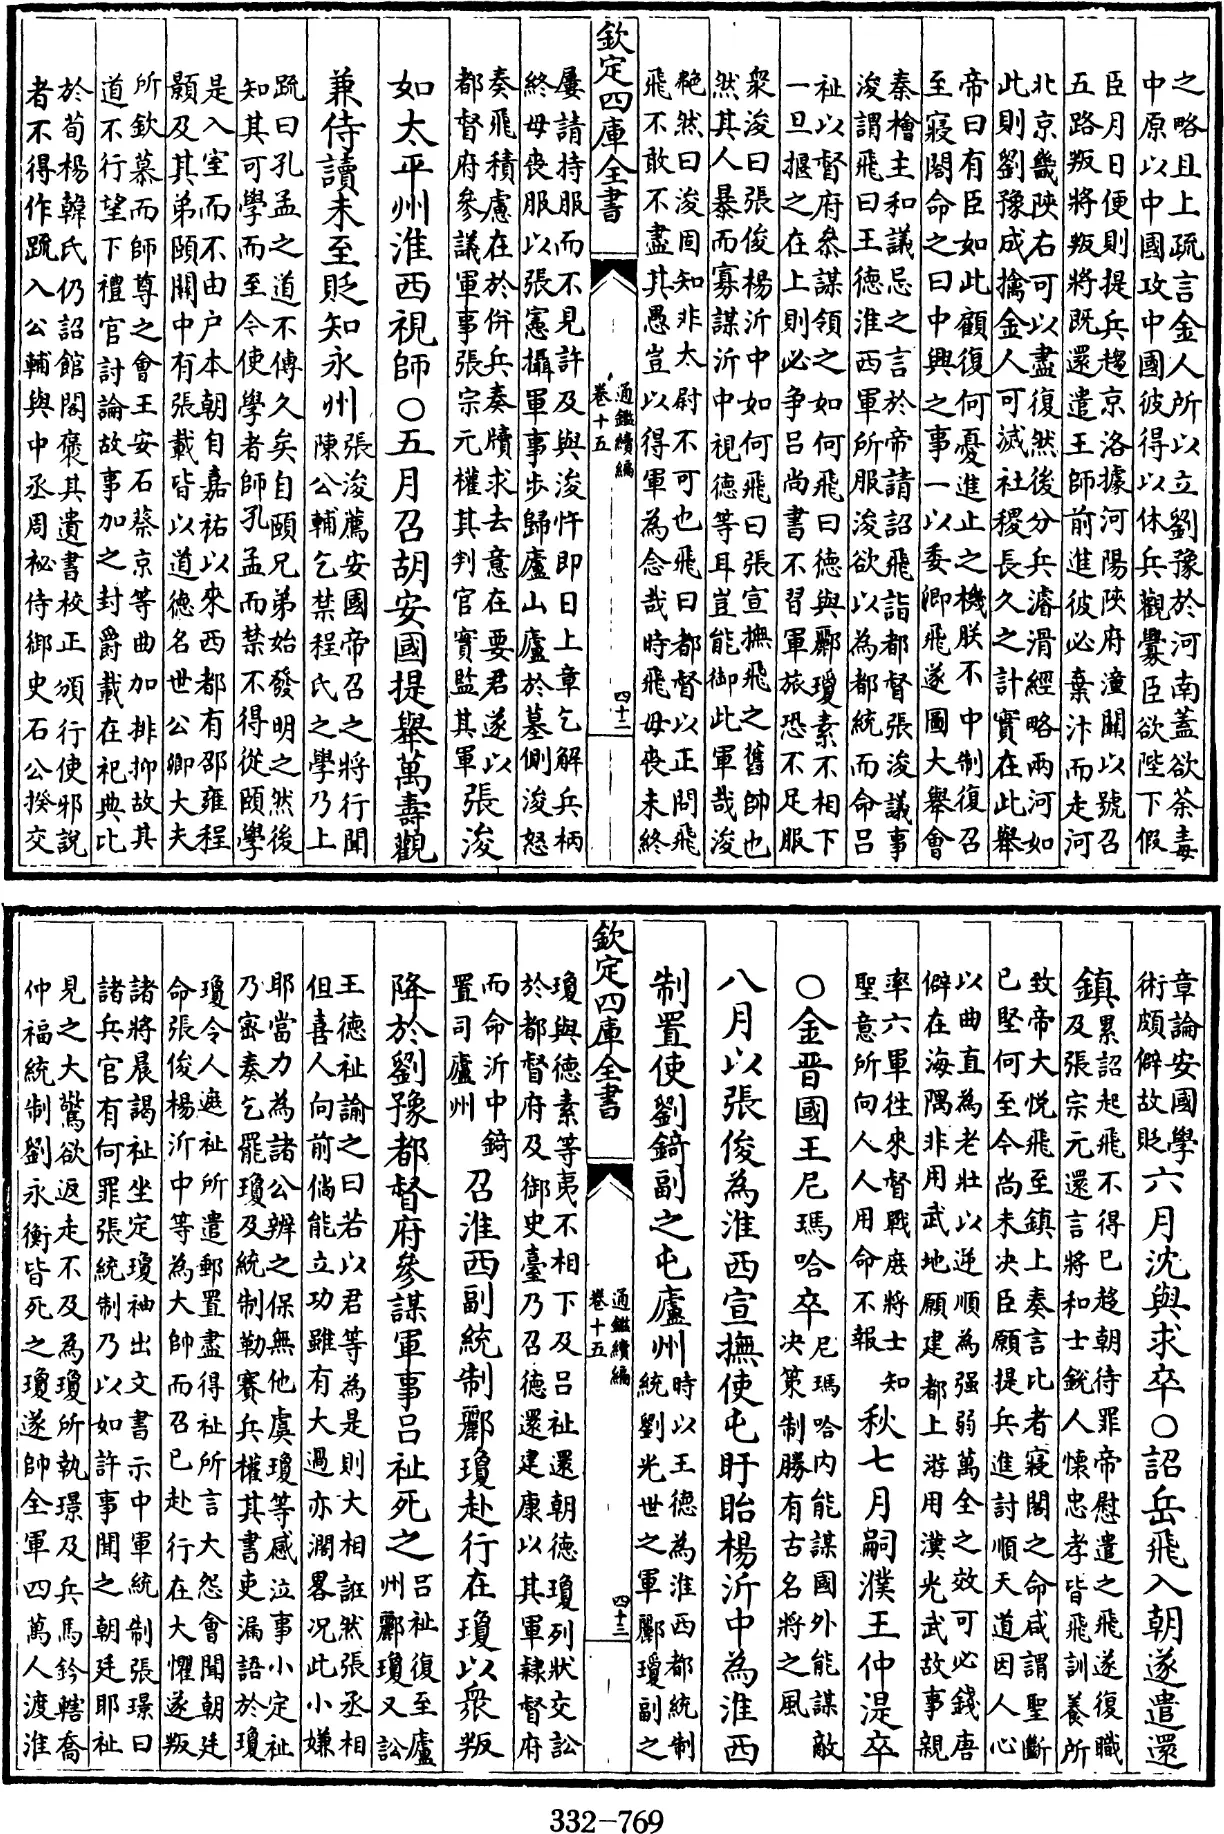 之略且上疏言金人所以立劉豫於河南蓋欲荼毒
中原以中國攻中國彼得以休兵觀釁臣欲陛下假
臣月日便則提兵趨京洛據河陽陝府潼關以號召
五路叛將叛將既還遣王師前進彼必棄汴而走河
北京畿陝右可以盡復然後分兵濬滑經略兩河如
此則劉豫成擒金人可滅社稷長久之計實在此舉
帝曰有臣如此顧復何憂進止之機朕不中制復召
至寢閣命之曰中興之事一以委卿飛遂圖大舉會
秦檜主和議忌之言於帝請詔飛詣都督張浚議事
浚謂飛曰王德淮西軍所服浚欲以為都統而命呂
祉以督府叅謀領之如何飛曰德與酈瓊素不相下
一旦揠之在上則必爭呂尚書不習軍旅恐不足服
衆浚曰張俊楊沂中如何飛曰張宣撫飛之舊帥也
然其人暴而寡謀沂中視德等耳豈能御此軍哉浚
艴然曰浚固知非太尉不可也飛曰都督以正問飛
飛不敢不盡其愚豈以得軍為念哉時飛母喪未終
欽定四庫全書
通鑑續編
卷十五
四十二
屢請持服而不見許及與浚忤即日上章乞解兵柄
終母喪服以張憲攝軍事步歸廬山廬於墓側浚怒
奏飛積慮在於併兵奏牘求去意在要君遂以
都督府參議軍事張宗元權其判官實監其軍
張浚
如太平州淮西視師○五月召胡安國提舉萬壽觀
兼侍讀未至貶知永州
張浚薦安國帝召之將行聞
陳公輔乞禁程氏之學乃上
疏曰孔孟之道不傳久矣自頤兄弟始發明之然後
知其可學而至今使學者師孔孟而禁不得從頤學
是入室而不由户本朝自嘉祐以來西都有邵雍程
顥及其弟頤關中有張載皆以道德名世公卿大夫
所欽慕而師尊之會王安石蔡京等曲加排抑故其
道不行望下禮官討論故事加之封爵載在祀典比
於荀楊韓氏仍詔館閣裒其遺書校正頒行使邪説
者不得作疏入公輔與中丞周祕侍御史石公揆交
章論安國學
術頗僻故貶
六月沈與求卒○詔岳飛入朝遂遣還
鎮
累詔起飛不得已趍朝待罪帝慰遣之飛遂復職
及張宗元還言將和士銳人懷忠孝皆飛訓養所
致帝大悦飛至鎮上奏言比者寢閣之命咸謂聖斷
已堅何至今尚未決臣願提兵進討順天道因人心
以曲直為老壯以逆順為强弱萬全之效可必錢唐
僻在海隅非用武地願建都上游用漢光武故事親
率六軍往來督戰庻將士知
聖意所向人人用命不報
秋七月嗣濮王仲湜卒
○金晉國王尼瑪哈卒
尼瑪哈内能謀國外能謀敵
决策制勝有古名將之風
八月以張俊為淮西宣撫使屯盱眙楊沂中為淮西
制置使劉錡副之屯廬州
時以王德為淮西都統制
統劉光世之軍酈瓊副之
瓊與德素等夷不相下及呂祉還朝德瓊列狀交訟
於都督府及御史臺乃召德還建康以其軍隸督府
而命沂中錡
置司廬州
召淮西副統制酈瓊赴行在瓊以衆叛
欽定四庫全書
通鑑續編
卷十五
四十三
降於劉豫都督府參謀軍事呂祉死之
呂祉復至廬
州酈瓊又訟
王德祉論之曰若以君等為是則大相誑然張丞相
但喜人向前倘能立功雖有大過亦濶畧况此小嫌
耶當力為諸公辨之保無他虞瓊等感泣事小定祉
乃密奏乞罷瓊及統制勒賽兵權其書吏漏語於瓊
瓊令人遮祉所遣郵置盡得祉所言大怨會聞朝廷
命張俊楊沂中等為大帥而召已赴行在大懼遂叛
諸將晨謁祉坐定瓊袖出文書示中軍統制張璟曰
諸兵官有何罪張統制乃以如許事聞之朝廷耶祉
見之大驚欲返走不及為瓊所執璟及兵馬鈐轄喬
仲福統制劉永衡皆死之瓊遂帥全軍四萬人渡淮
332-769